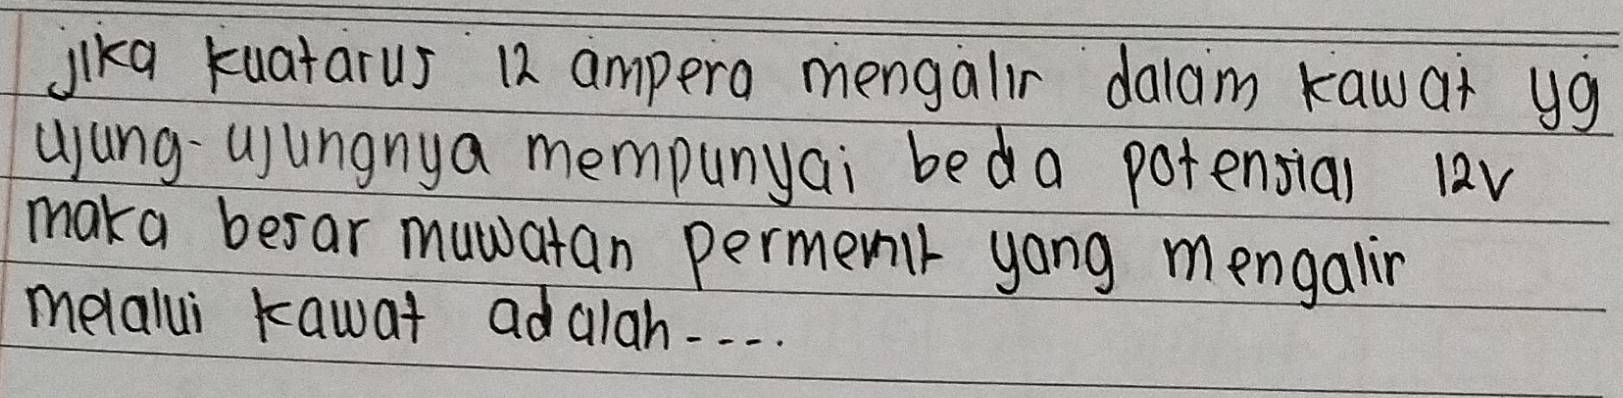 jika kuatarus 12 ampera mengalir dalam kawat yg
ujung-ujungnya mempunyai beda potensial 12V
maka besar muwatan permenit yang mengalir
melalui kawat adalah----.